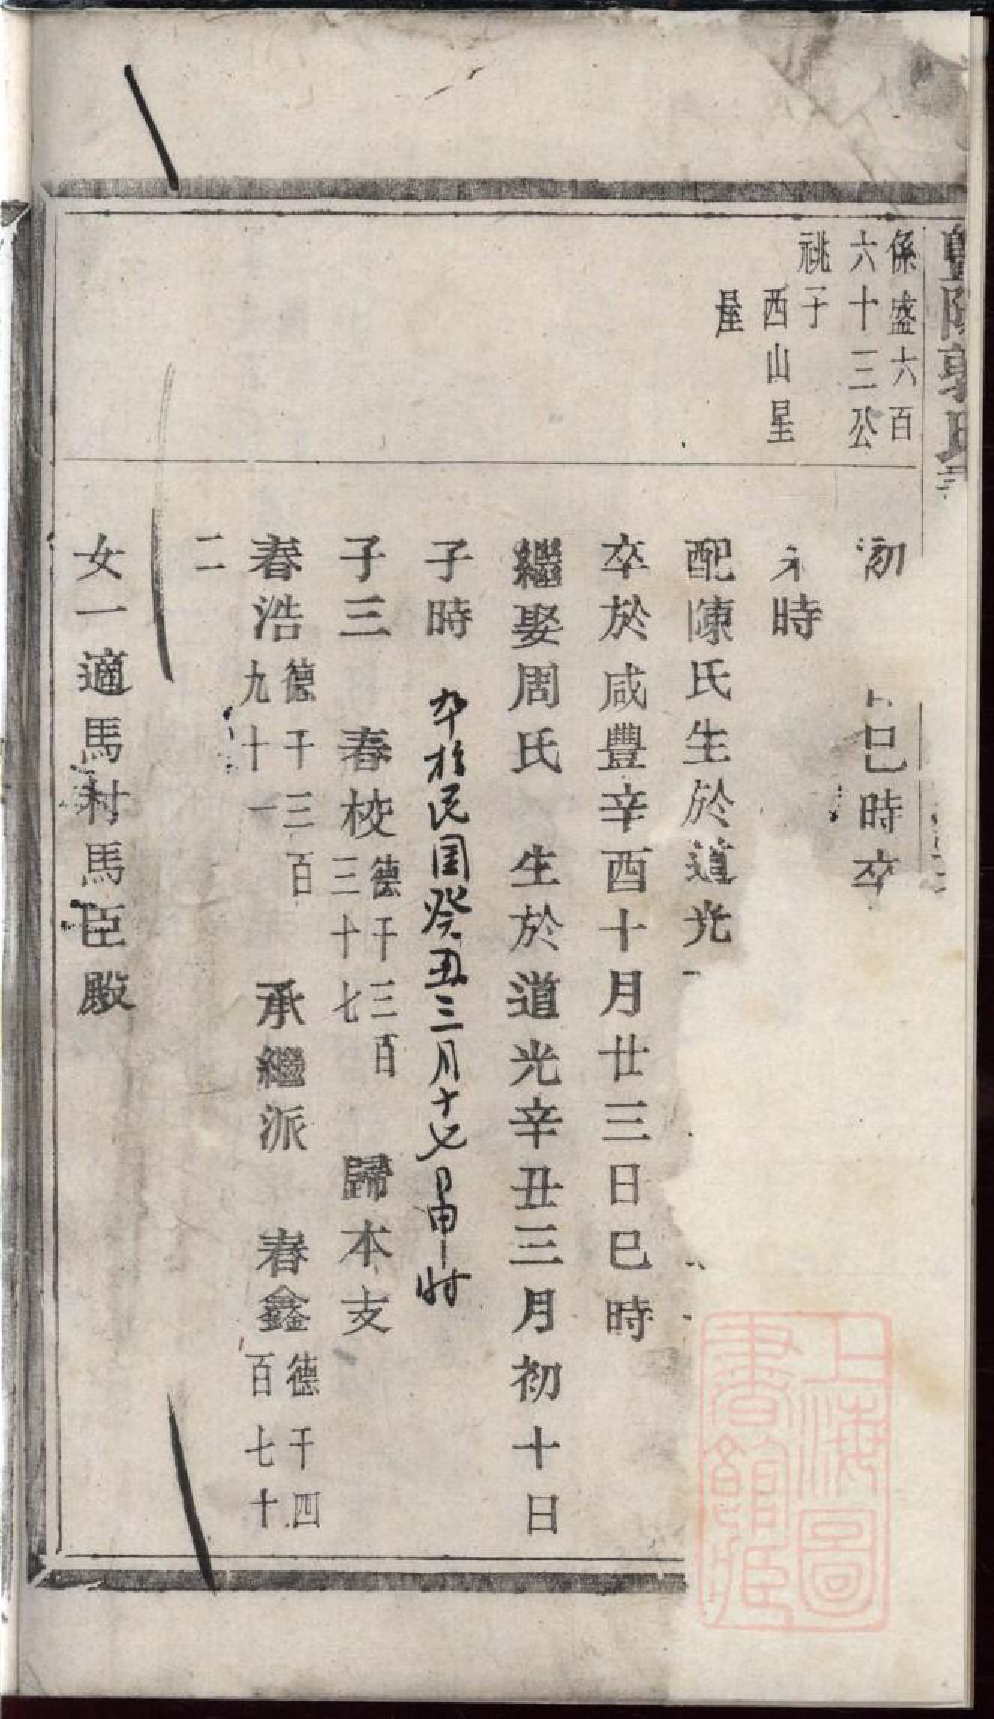 暨陽郭氏
係盛六百
六十三公
祧子
西山星
星
初
巳時卒
時
配陳氏生於道光
卒於咸豐辛酉十月廿三日巳時
繼娶周氏 生於道光辛丑三月初十日
子時 卒於民国癸丑三月十七日申时
子三 春校德千三百三十七 歸本支
春浩德千三百九十一 承繼派 春鑫德千四百七十
二
女一適馬村馬臣殿
上海圖
書館藏